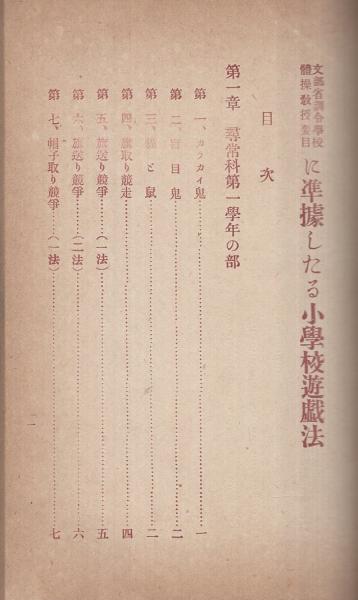 文部省訓令學校
體操教授要目
に準據したる小學校遊戯法
目次
第一章 尋常科第一學年の部
第一、カラカイ鬼 一
第二、盲目鬼 二
第三、猫と鼠 二
第四、旗取り競走 四
第五、旗送り競爭(一法) 五
第六、旗送り競爭(二法) 六
第七、帽子取り競爭(一法) 七
一